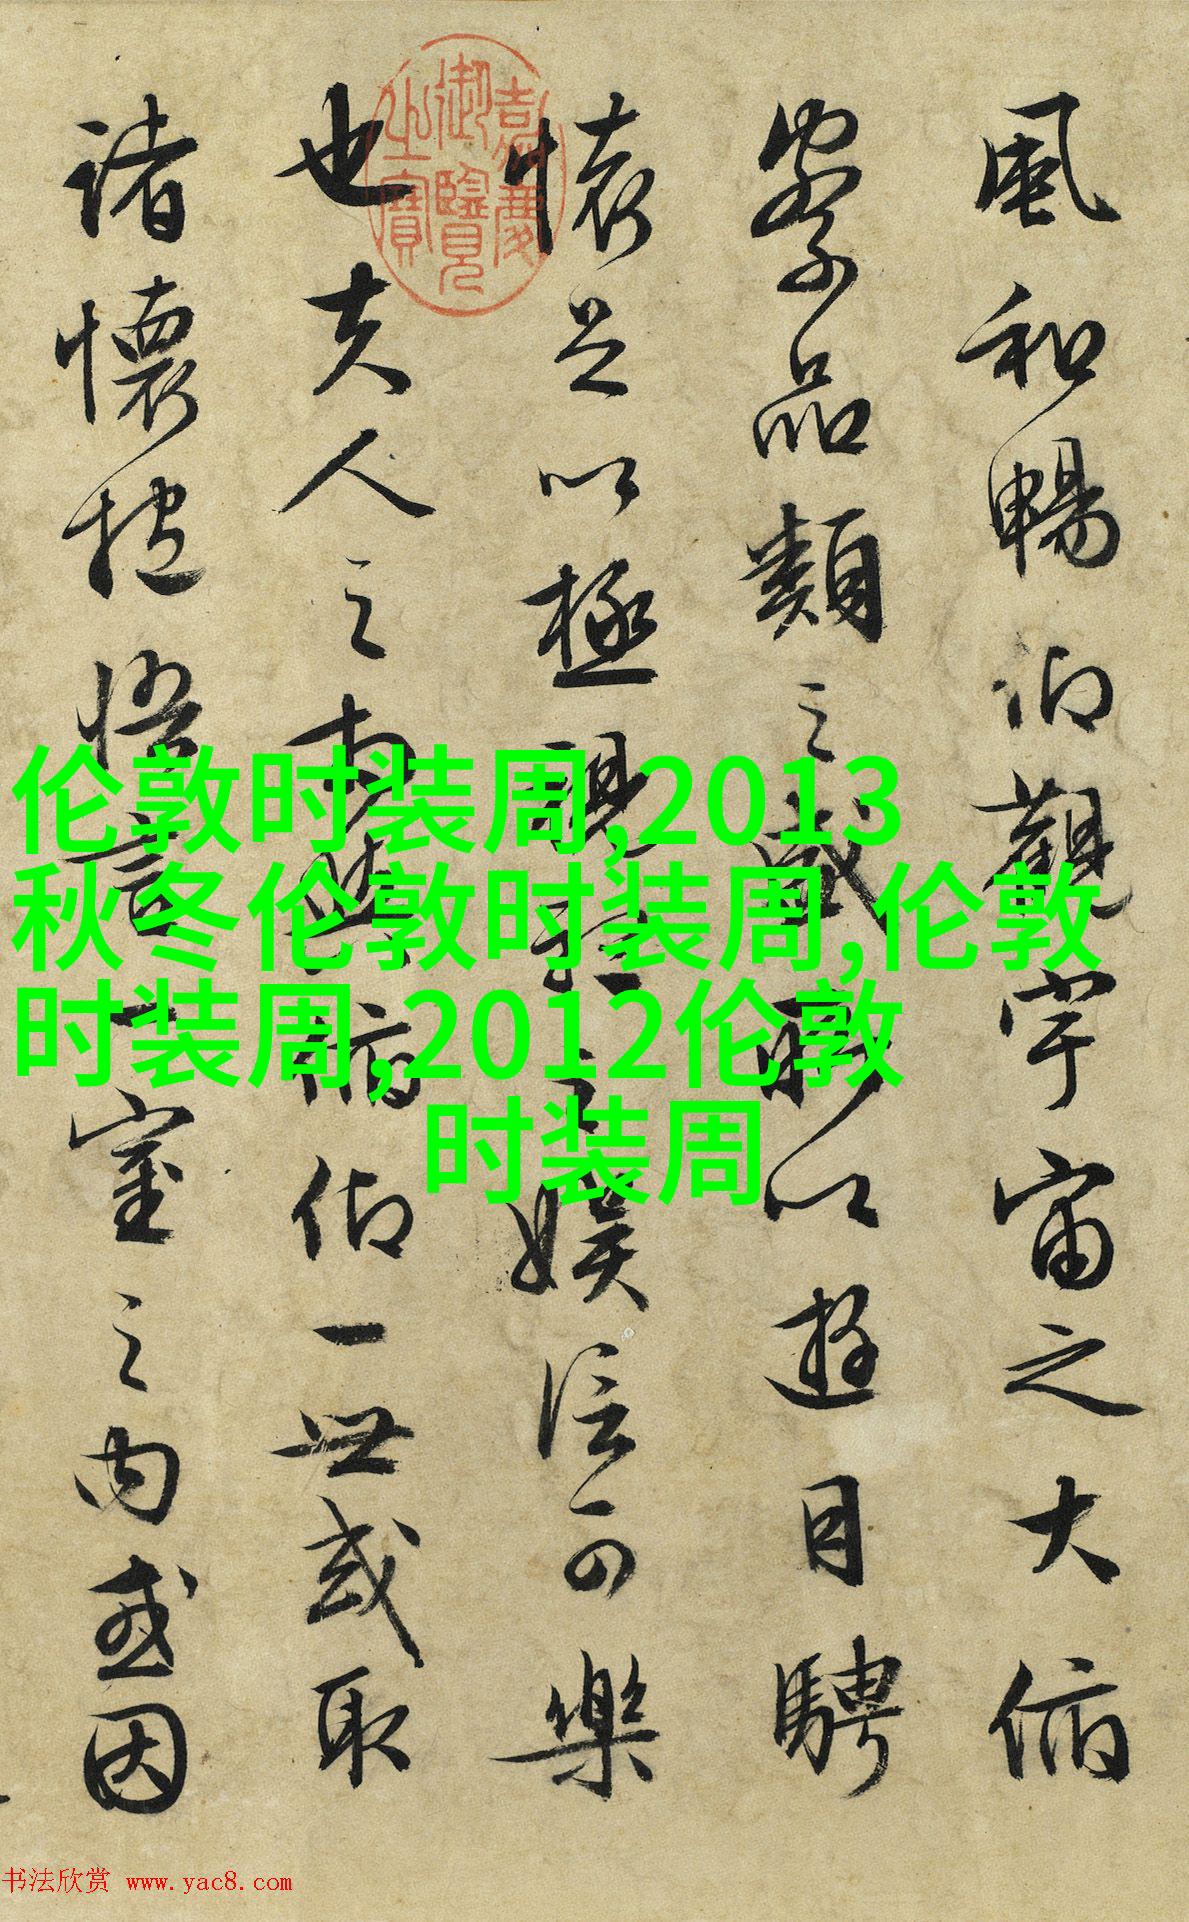 風和暢仰觀宇宙之大俯
察品類之盛所以遊目騁
懷足以極視聽之娛信可樂
也夫人之相與俯仰一世或取
諸懷抱悟言一室之内或因
嘉慶
御覽
之寶
伦敦时装周,2013
秋冬伦敦时装周,伦敦
时装周,2012伦敦
时装周
书法欣赏 www.yac8.com